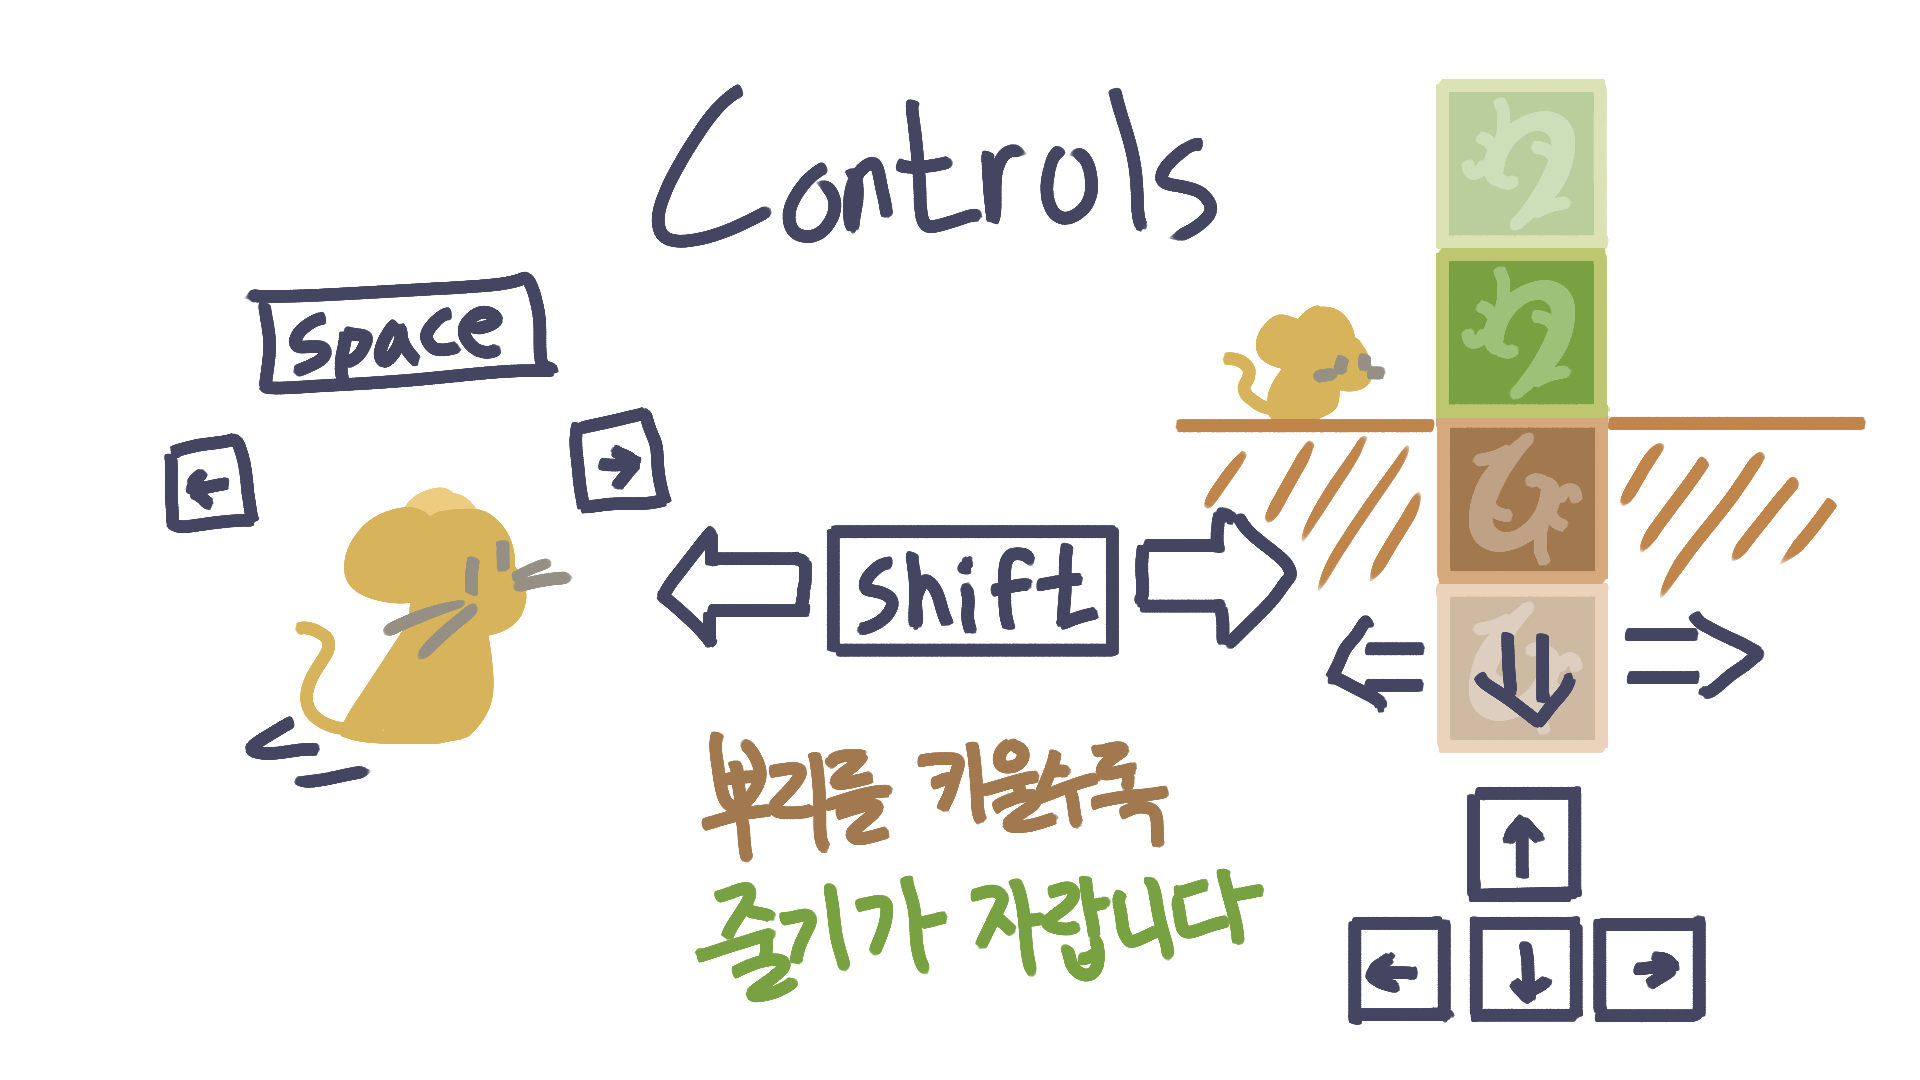 Controls
space
shift
뿌리를 키울수록
줄기가 자랍니다